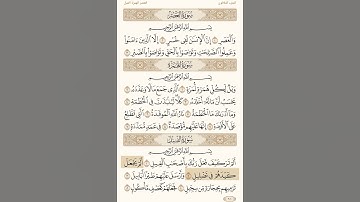 العصر الهمزة الفيل
الجزء الثلاثون
سُورَةُ العَصْرِ
بِسْمِ ٱللَّهِ ٱلرَّحْمَٰنِ ٱلرَّحِيمِ
وَٱلْعَصْرِ ١ إِنَّ ٱلْإِنسَٰنَ لَفِى خُسْرٍ ٢ إِلَّا ٱلَّذِينَ ءَامَنُوا۟
وَعَمِلُوا۟ ٱلصَّٰلِحَٰتِ وَتَوَاصَوْا۟ بِٱلْحَقِّ وَتَوَاصَوْا۟ بِٱلصَّبْرِ ٣
سُورَةُ الهُمَزَةِ
بِسْمِ ٱللَّهِ ٱلرَّحْمَٰنِ ٱلرَّحِيمِ
وَيْلٌ لِّكُلِّ هُمَزَةٍ لُّمَزَةٍ ١ ٱلَّذِى جَمَعَ مَالًا وَعَدَّدَهُۥ ٢
يَحْسَبُ أَنَّ مَالَهُۥٓ أَخْلَدَهُۥ ٣ كَلَّا لَيُنۢبَذَنَّ فِى ٱلْحُطَمَةِ ٤
وَمَآ أَدْرَىٰكَ مَا ٱلْحُطَمَةُ ٥ نَارُ ٱللَّهِ ٱلْمُوقَدَةُ ٦ ٱلَّتِى تَطَّلِعُ
عَلَى ٱلْأَفْـِٔدَةِ ٧ إِنَّهَا عَلَيْهِم مُّؤْصَدَةٌ ٨ فِى عَمَدٍ مُّمَدَّدَةٍۭ ٩
سُورَةُ الفِيلِ
بِسْمِ ٱللَّهِ ٱلرَّحْمَٰنِ ٱلرَّحِيمِ
أَلَمْ تَرَ كَيْفَ فَعَلَ رَبُّكَ بِأَصْحَٰبِ ٱلْفِيلِ ١ أَلَمْ يَجْعَلْ
كَيْدَهُمْ فِى تَضْلِيلٍ ٢ وَأَرْسَلَ عَلَيْهِمْ طَيْرًا أَبَابِيلَ ٣
تَرْمِيهِم بِحِجَارَةٍ مِّن سِجِّيلٍ ٤ فَجَعَلَهُمْ كَعَصْفٍ مَّأْكُولٍۭ ٥